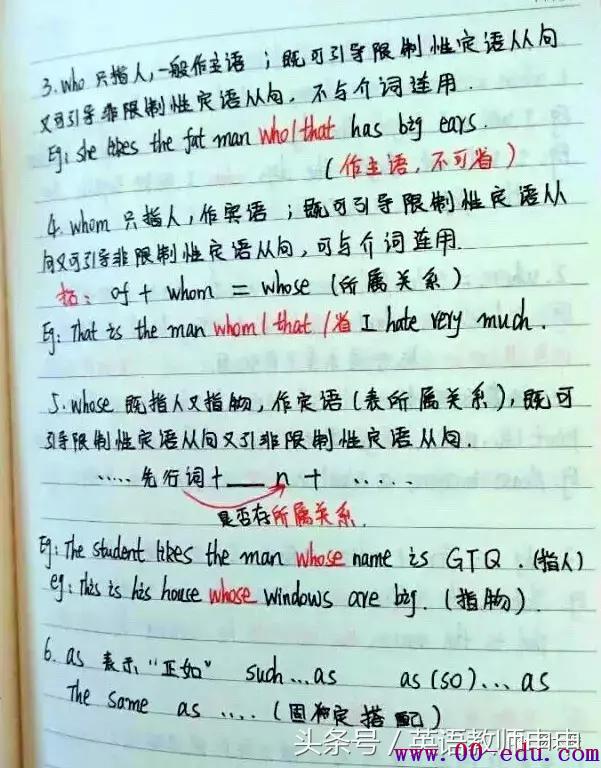 3. who 只指人，一般作主语；既可引导限制性定语从句
又可引导非限制性定语从句，不与介词连用.
Eg: she likes the fat man who/that has big ears.
(作主语，不可省)
4. whom 只指人，作宾语；既可引导限制性定语从
句又可引导非限制性定语从句，可与介词连用.
of + whom = whose (所属关系)
Eg: That is the man whom/that/省 I hate very much.
5. whose 既指人又指物，作定语(表所属关系)，既可
引导限制性定语从句又引非限制性定语从句.
.....先行词+___ n + .....
是否存所属关系.
Eg: The student likes the man whose name is GTQ. (指人)
eg: This is his house whose windows are big. (指物).
6. as 表示"正如" such...as as(so)...as
The same as .... (固定搭配)
头条号/英语教师冉冉
www.00-edu.com